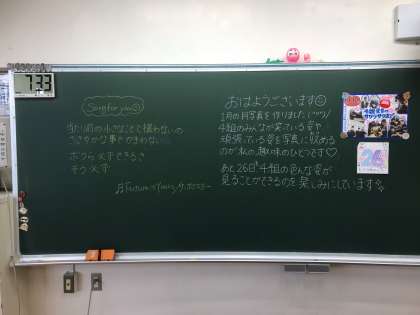 7:33
Song for you
当たり前の小さなことで構わないの
ささやかな事でかまわない
ボクら 必ずできるさ
そう 必ず
おはようございます
1月の月写真を作りました
4組のみんなが笑っている姿や
頑張っている姿を写真に収める
のが私の趣味のひとつです♡
あと26日で4組の色んな姿が
見ることができるのを楽しみにしています
26